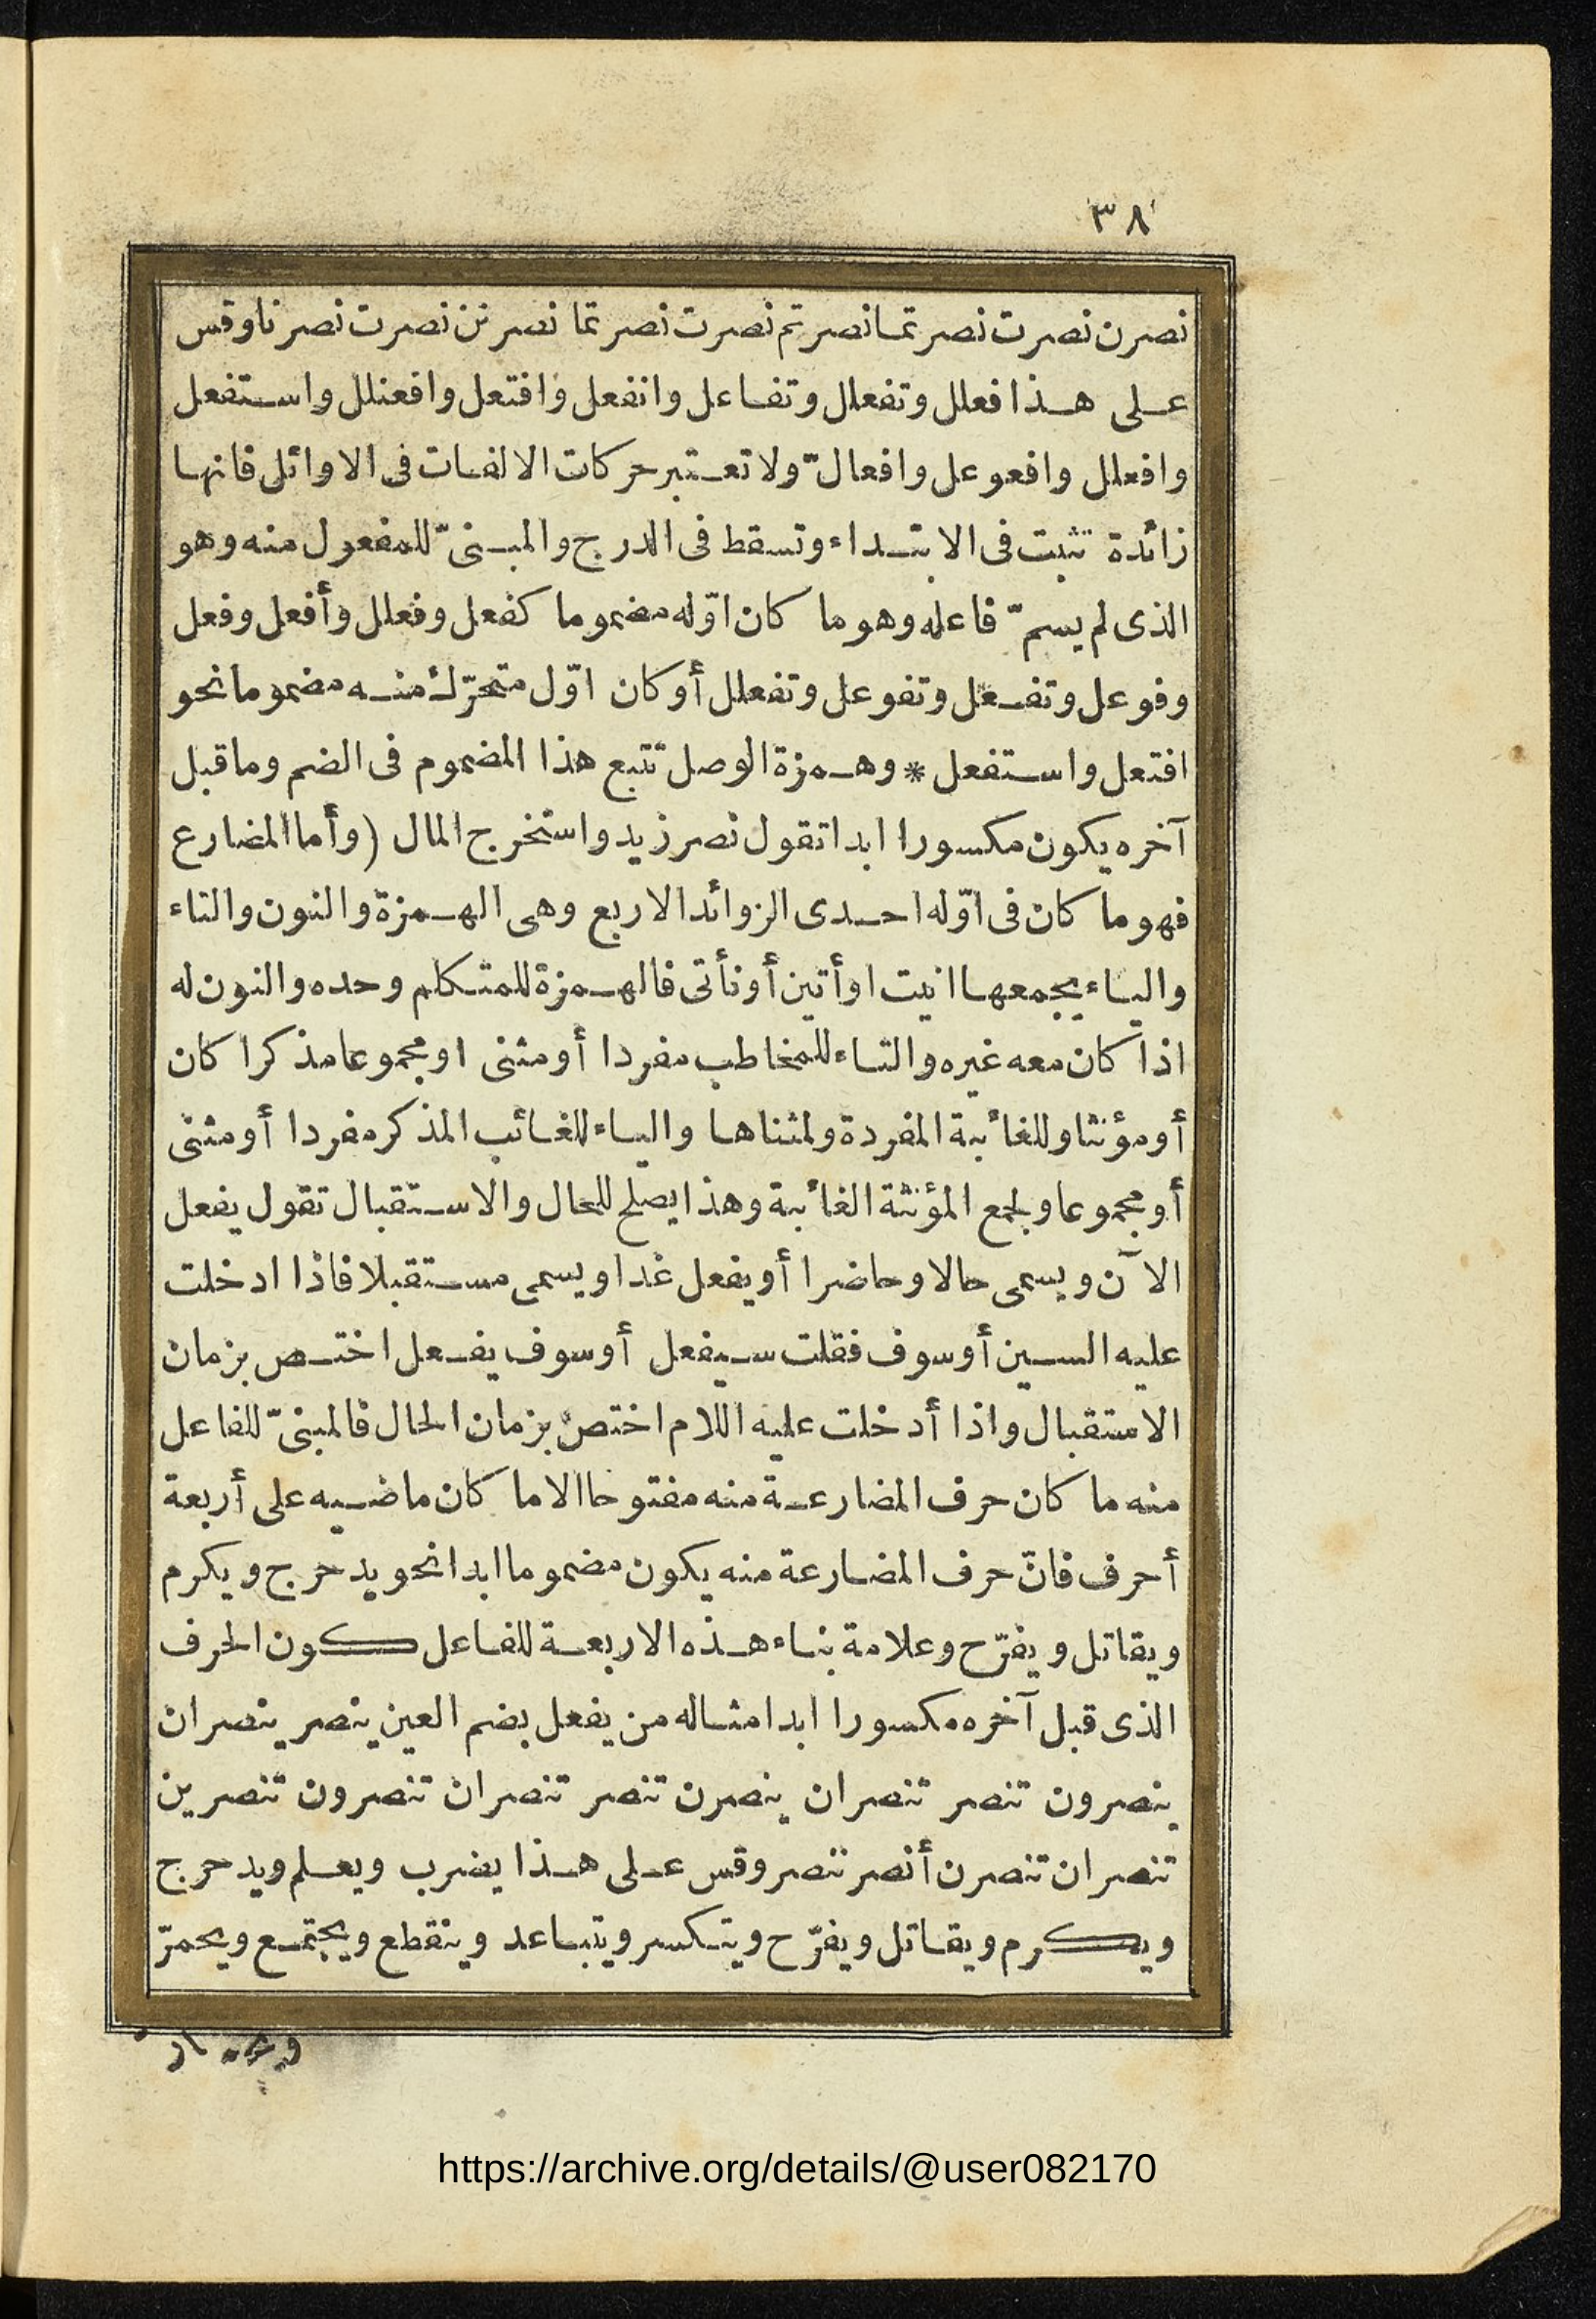 ٣٨
نصرن نصرت نصرتما نصرتم نصرت نصرتما نصرتن نصرت نصرنا وقس
على هذا فعلل وتفعلل وتفاعل وانفعل وافتعل وافعنلل واستفعل
وافعلل وافعوعل وافعالّ ولا تعتبر حركات الالفات فى الاوائل فانها
زائدة تثبت فى الابتداء وتسقط فى الدرج والمبنىّ للمفعول منه وهو
الذى لم يسمّ فاعله وهو ما كان اوّله مضموما كفعل وفعلل وأفعل وفعل
وفوعل وتفعل وتفوعل وتفعلل أو كان اوّل متحرّك منه مضموما نحو
افتعل واستفعل * وهمزة الوصل تتبع هذا المضموم فى الضم وما قبل
آخره يكون مكسورا ابدا تقول نصر زيد واستخرج المال (وأما المضارع
فهو ما كان فى اوّله احدى الزوائد الاربع وهى الهمزة والنون والتاء
والياء يجمعها انيت او أتين أو نأتى فالهمزة للمتكلم وحده والنون له
اذا كان معه غيره والتاء للمخاطب مفردا أو مثنى او مجموعا مذكرا كان
أو مؤنثا وللغائبة المفردة ولمثناها والياء للغائب المذكر مفردا أو مثنى
أو مجموعا ولجمع المؤنثة الغائبة وهذا يصلح للحال والاستقبال تقول يفعل
الآن ويسمى حالا وحاضرا أو يفعل غدا ويسمى مستقبلا فاذا ادخلت
عليه السين أو سوف فقلت سيفعل أو سوف يفعل اختص بزمان
الاستقبال واذا أدخلت عليه اللام اختص بزمان الحال فالمبنىّ للفاعل
منه ما كان حرف المضارعة منه مفتوحا الا ما كان ماضيه على أربعة
أحرف فانّ حرف المضارعة منه يكون مضموما ابدا نحو يدحرج ويكرم
ويقاتل ويفرّح وعلامة بناء هذه الاربعة للفاعل كون الحرف
الذى قبل آخره مكسورا ابدا مثاله من يفعل بضم العين ينصر ينصران
ينصرون تنصر تنصران ينصرن تنصر تنصران تنصرون تنصرين
تنصران تنصرن أنصر ننصر وقس على هذا يضرب ويعلم ويدحرج
ويكرم ويقاتل ويفرّح ويتكسر ويتباعد وينقطع ويجتمع ويحمرّ
https://archive.org/details/@user082170